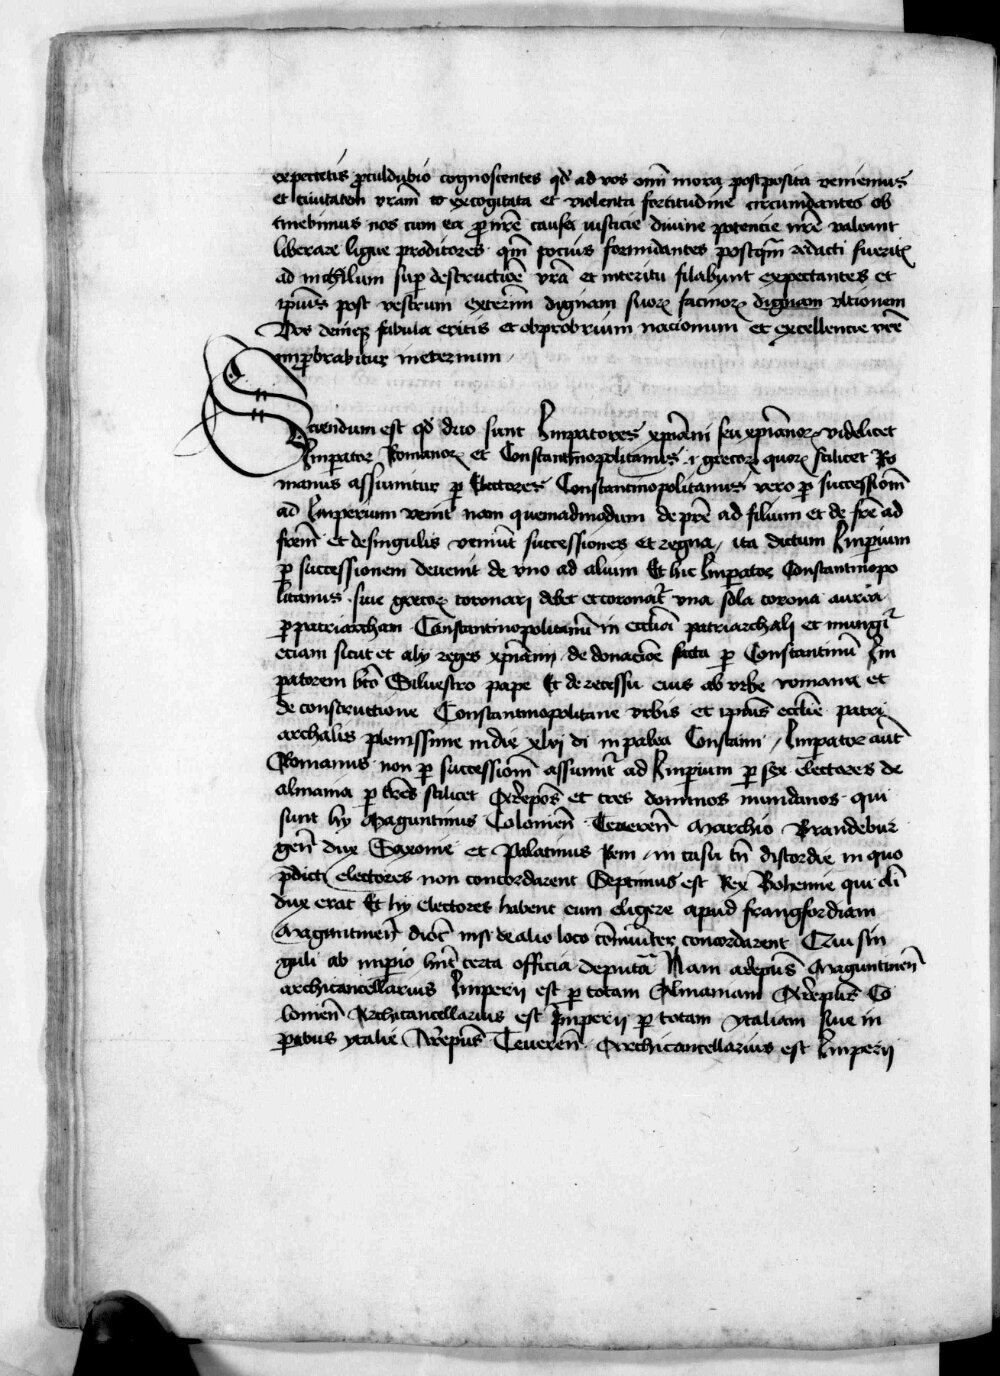 expectetis proculdubio cognoscentes qd ad vos omi mora postposita veniemus
et civitatem vram et excogitata et violenta fortitudine circumdantes ob
tinebimus nos cum ea pro nre causa iusticie divine potencie nre valeant
liberare ligue proditores qm pocius formidantes postqm redacti fuerit
ad nichilum sup destructioe vra et interitu silabunt expectantes et
ipius post vestrum exterim dignam suor facinor dignam ultionem
Vos deniq fabula eritis et obprobrium nacionum et excellencie vre
improbrabitur ineternum
Sciendum est qd duo sunt Impatores xpiani seu xpianor videlicet
Impator Romanor et Constantinopolitanus i grecor quor scilicet Ro
manus assumitur p Electores Constantinopolitanus vero p successiom
ad Imperium venit nam quemadmodum de pre ad filium et de fre ad
frem et de singulis veniut successiones et regna ita dictum Imperium
p successionem devenit de vno ad alium Et hic Impator Constantinopo
litanus siue grecor coronari debet et coronat vna sola corona aurea
p patriarcham Constantinopolitanu in ecclia patriarchali et inungit
eciam sicut et alij reges xpiani de donacioe facta p Constantinu Im
patorem bto Siluestro pape Et de recessu eius ab vrbe romana et
de constructione Constantinopolitane vrbis et ipius ecclie patri
archalis plenissime in die xlvj di in palea Constanti Impator aut
Romanus non p successiom assumit ad Imperium p sex electores de
almania p tres scilicet Archiepos et tres dominos mundanos qui
sunt hij Maguntinus Colonien Treveren Marchio Brandebur
gen dux Saxonie et Palatinus Reni in casu tn discordie in quo
pdicti electores non concordarent Septimus est Rex Bohemie qui oli
dux erat Et hij electores habent eum eligere apud frangfordiam
Maguntinen dioc nisi de alio loco comuniter concordarent Cui sin
guli ab imperio hnt certa officia deputata Nam archiepus Maguntinen
archicancellarius Imperii est p totam Almaniam Archiepus Co
lonien Archicancellarius est Imperii p totam ytaliam siue in
ptibus ytalie Archiepus Treveren Archicancellarius est Imperii